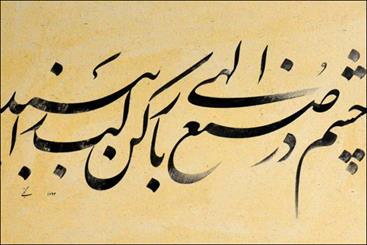 چشم در صنع الهی باز کن لب را ببند